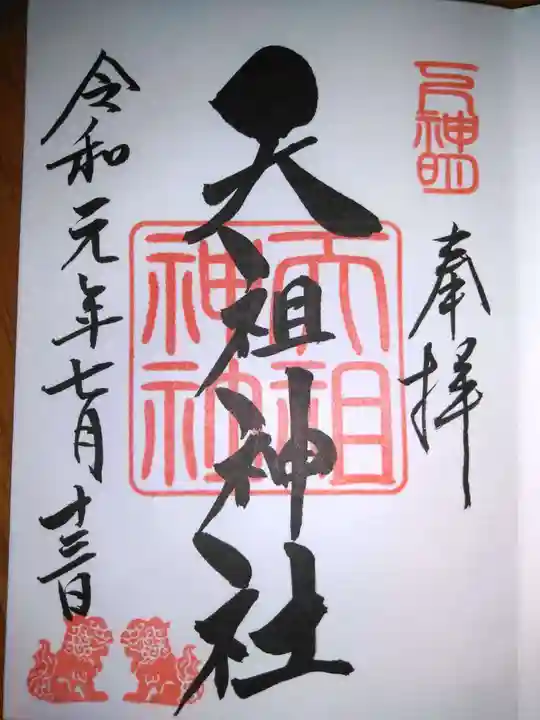 奉拝
天祖神社
天祖
神社
令和元年七月十三日